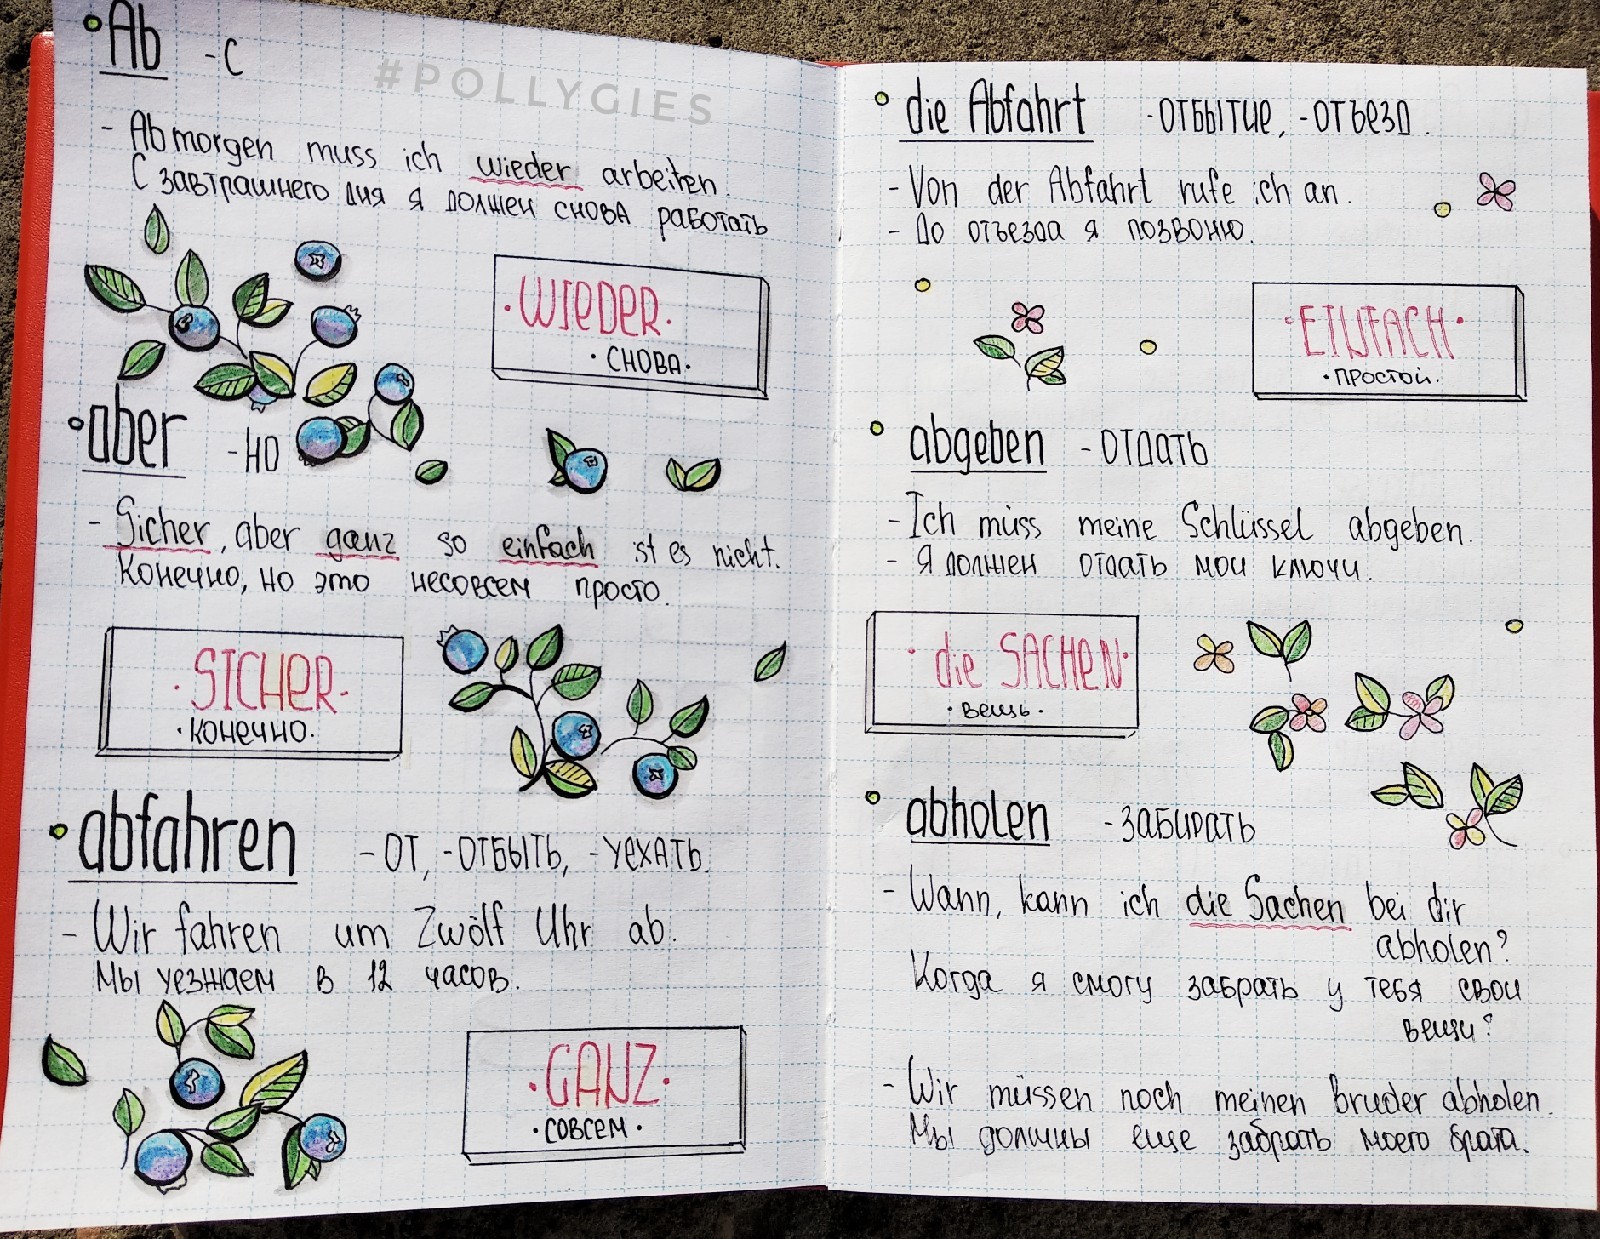 Ab -с
#POLLYGIES
- Ab morgen muss ich wieder arbeiten.
С завтрашнего дня я должен снова работать
·WIEDER·
·СНОВА·
aber -но
- Sicher, aber ganz so einfach ist es nicht.
Конечно, но это несовсем просто.
·SICHER·
·КОНЕЧНО·
abfahren -от, -отбыть, -уехать.
- Wir fahren um Zwölf Uhr ab.
Мы уезжаем в 12 часов.
·GANZ·
·СОВСЕМ·
die Abfahrt -отбытие, -отъезд.
- Von der Abfahrt rufe ich an.
- До отъезда я позвоню.
·EINFACH·
·ПРОСТОЙ·
abgeben -отдать
- Ich müss meine Schlüssel abgeben.
- Я должен отдать мои ключи.
·die SACHEN·
·вещь·
abholen -забирать
- Wann, kann ich die Sachen bei dir
abholen?
Когда я смогу забрать у тебя свои
вещи?
- Wir müssen noch meinen Bruder abholen.
Мы должны еще забрать моего брата.